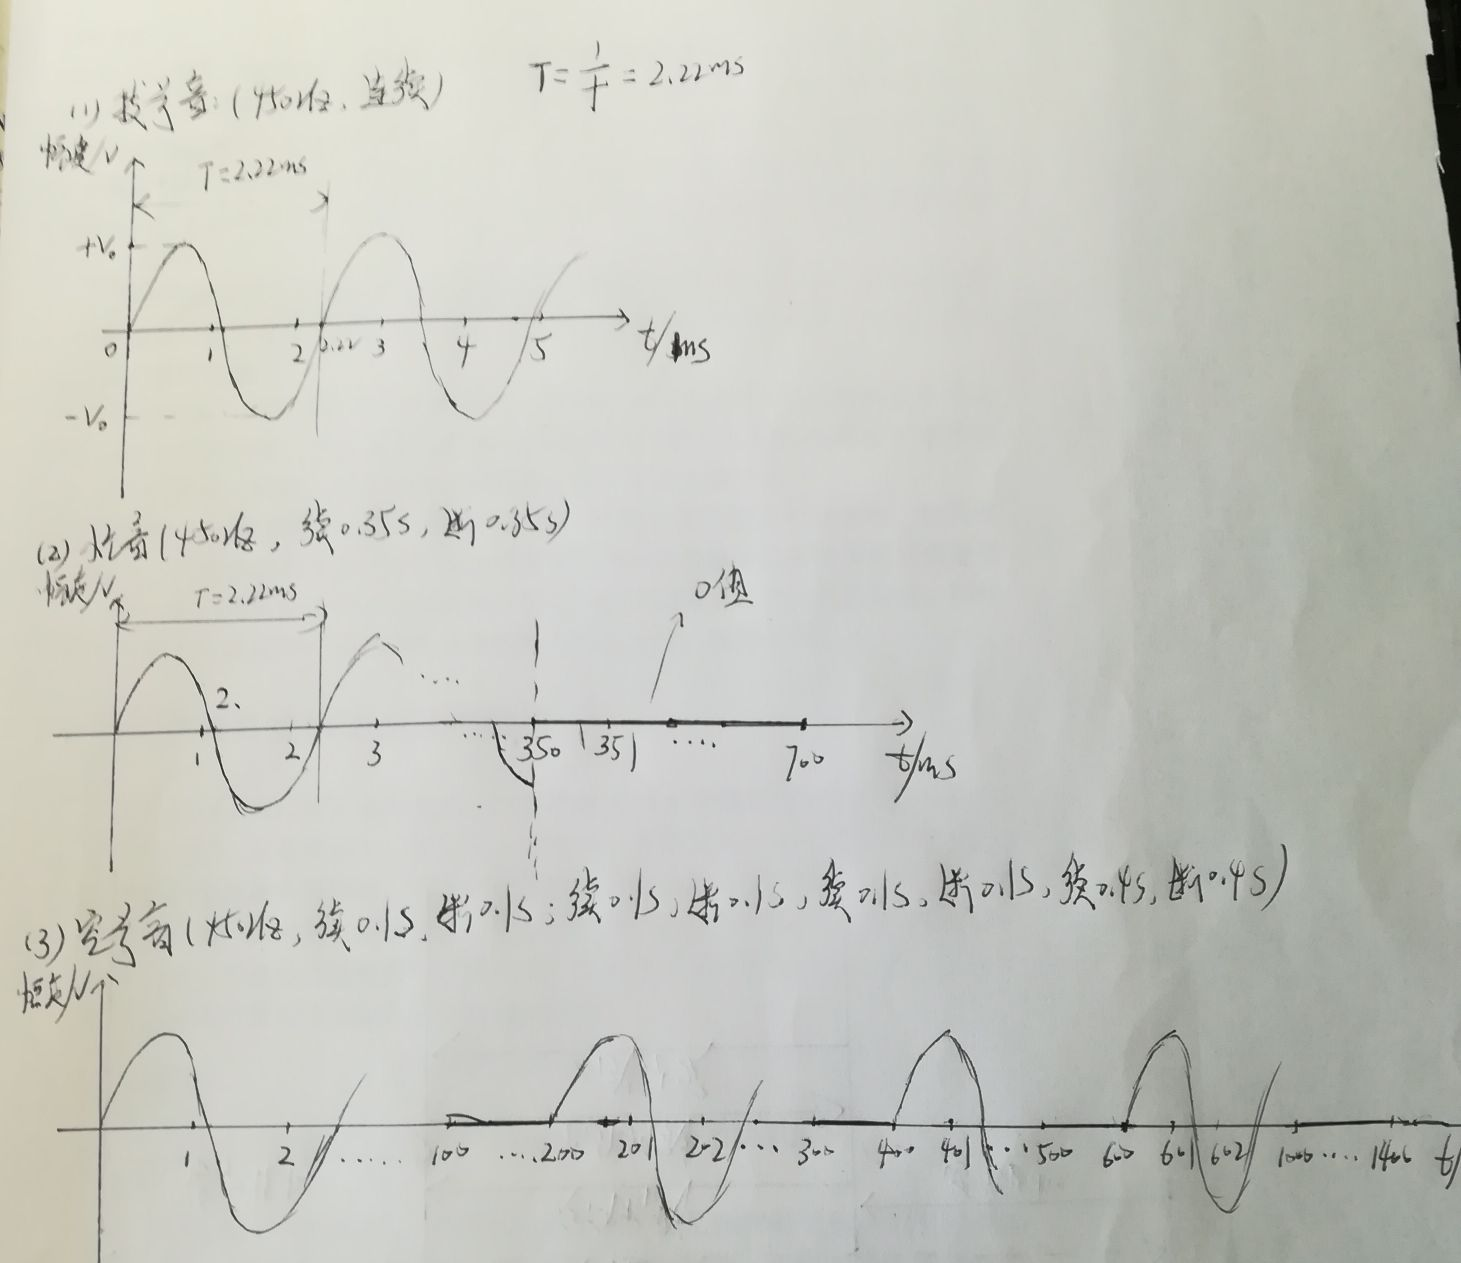 (1) 拨号音:(450Hz、连续) T=1/f=2.22ms
恒定/V
T=2.22ms
+V₀
0 1 2 2.22 3 4 5 t/ms
-V₀
(2) 忙音(450Hz, 续0.35s, 断0.35s)
恒定/V
T=2.22ms
0值
2、
....
1 2 3 .... 350 351 .... 700 t/ms
(3) 空号音(450Hz, 续0.1s, 断0.1s; 续0.1s, 断0.1s, 续0.1s, 断0.1s, 续0.4s, 断0.4s)
恒定/V
1 2 ..... 100 ....200 201 202 ... 300 400 401 ... 500 600 601 602 1000 .... 1400 t/